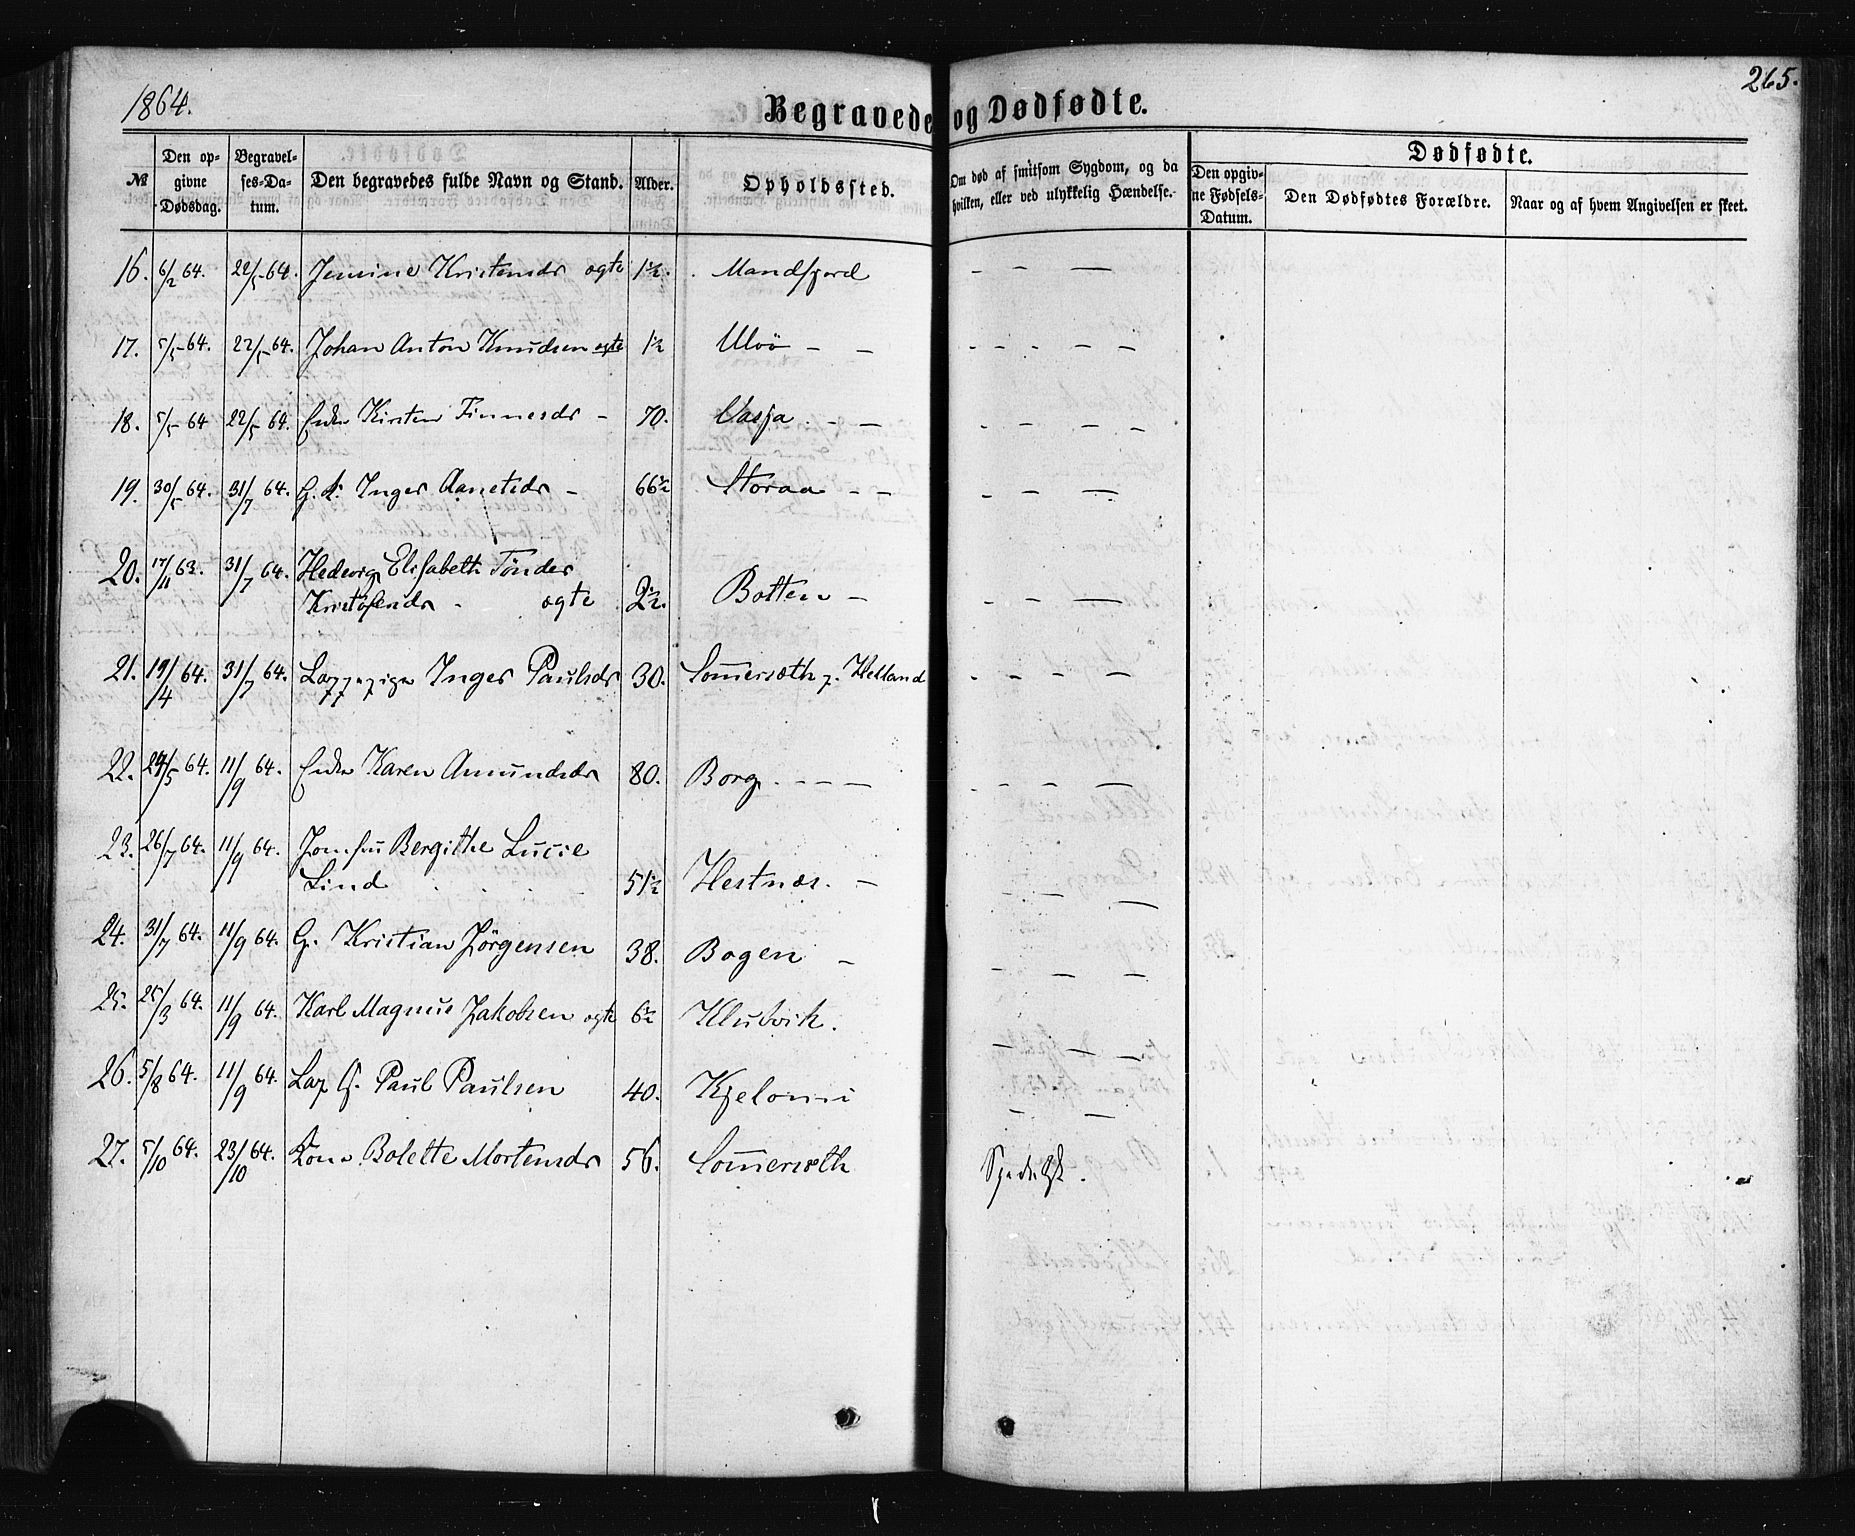 1864.
265.
Begravede og Dødfødte.
№
Den opgivne Dødsdag.
Begravelses-Datum.
Den begravedes fulde Navn og Stand.
Alder.
Opholdssted.
Om død af smitsom Sygdom, og da hvilken, eller ved ulykkelig Hændelse.
Dødfødte.
Den opgivne Fødsels-Datum.
Den Dødfødtes Forældre.
Naar og af hvem Angivelsen er skeet.
16. 6/2 64. 22/5 64. Kristensdr ægte 1½. Mandfjord - - —
17. 5/5 64. 22/5 64. Johan Anton Knudsen ægte 1½ Ulvø - - - - - - -
18. 5/5 64 22/5 64. Enke Kirsten Finnesdr - 70. Vasja - - - - - -
19. 30/5 64. 31/7 64. Inger - 66½ Storaa - - - - —
20. 17/11 63. 31/7 64. Hedevig Elisabeth Tønder
Kristofersdr - ægte 2½. Botten - - - —
21. 19/4 64. 31/7 64. Inger Paulsdr 30. Sommersæth Helland - - - -
22. 24/5 64. 11/9 64. Enke Karen Amundsdr 80. Borg - - - - - - -
23. 26/7 64. 11/9 64. Jomfru Bergithe Lucie
Lind 51½ Hestnæs. - - - —
24. 31/7 64. 11/9 64. G. Kristian Jörgensen 38. Bogen - - - -
25. 25/3 64. 11/9 64. Karl Magnus Jakobsen ægte 6½ Klubvik. - - -
26. 5/8 64. 11/9 64. Lap G. Paul Paulsen 40. - —
27. 5/10 64. 23/10 64. Kone Bolette Mortensdr 56. Sommersæth Spedalsk.